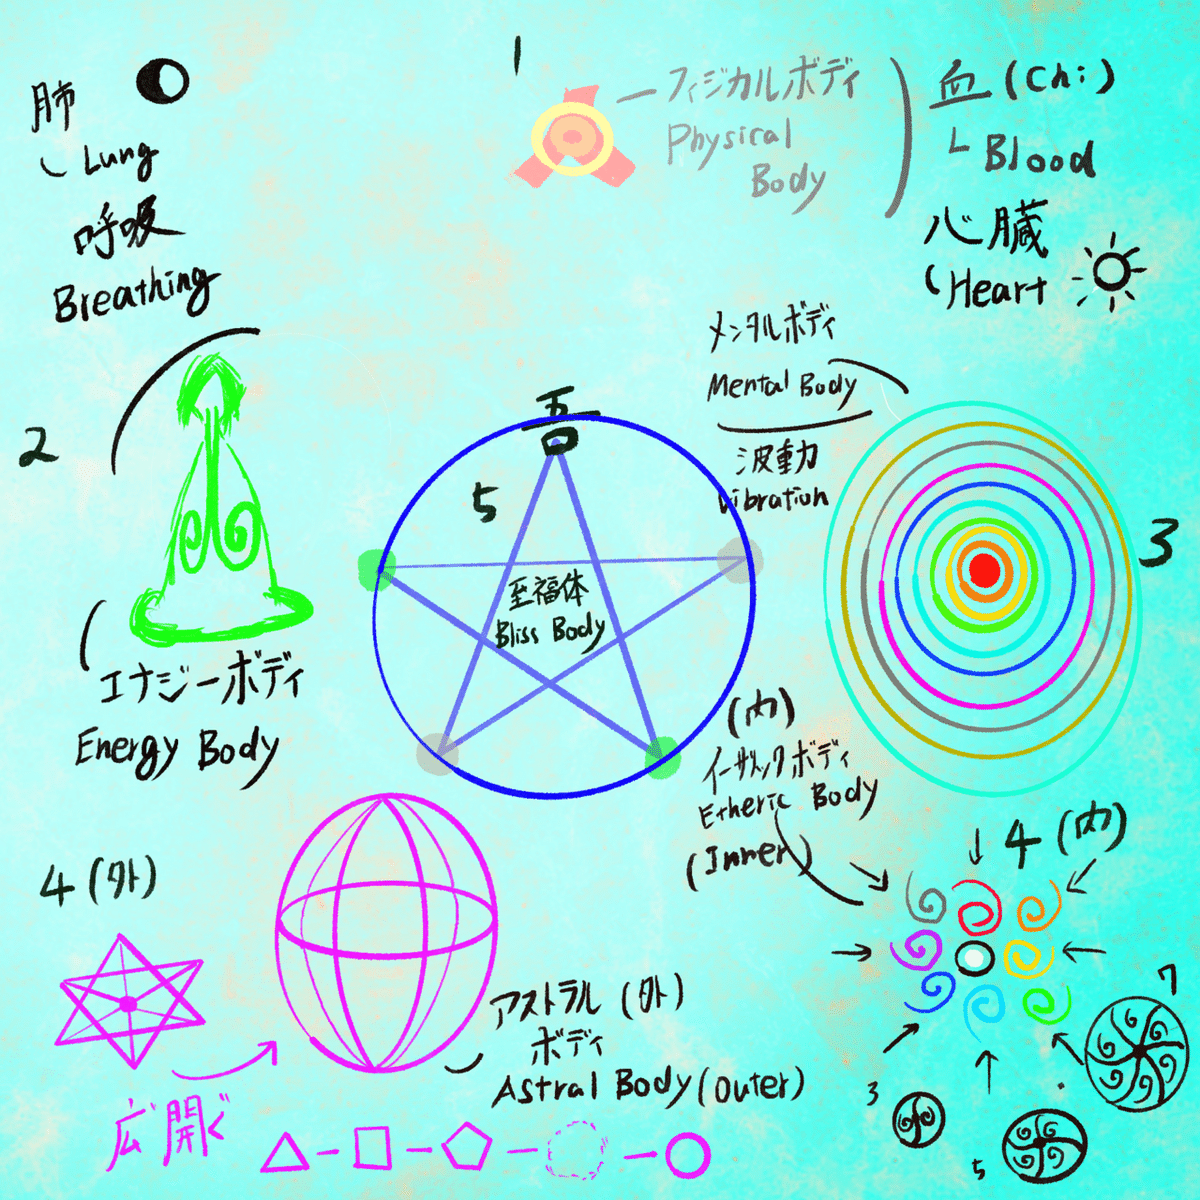 肺
Lung
呼吸
Breathing
1
フィジカルボディ
Physical
Body
血 (Chi)
Blood
心臓
Heart
2
エナジーボディ
Energy Body
吾
5
至福体
Bliss Body
メンタルボディ
Mental Body
波動
Vibration
3
(内)
イーサリックボディ
Etheric Body
(Inner)
4 (内)
4 (外)
アストラル (外)
ボディ
Astral Body (outer)
広 開
3
5
7